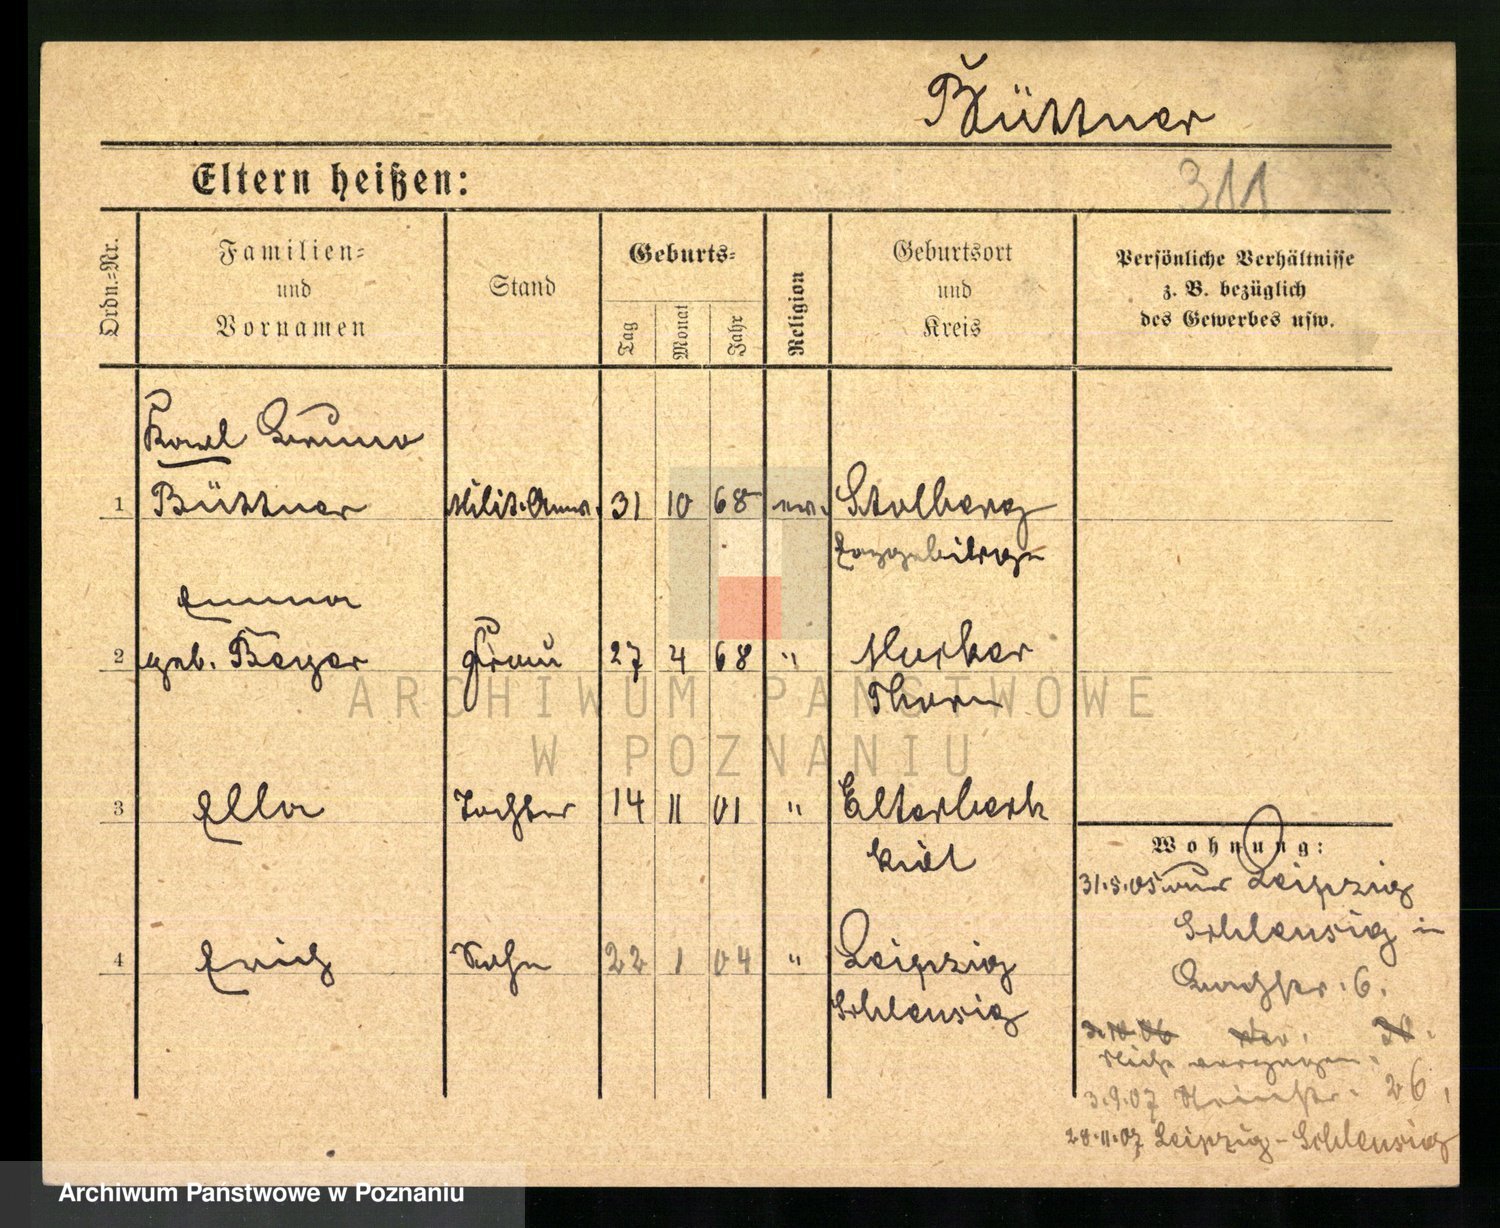 Büttner
311
Eltern heißen:
Ordn.=Nr.
Familien=
und
Vornamen
Stand
Geburts=
Tag
Monat
Jahr
Religion
Geburtsort
und
Kreis
Persönliche Verhältnisse
z. B. bezüglich
des Gewerbes usw.
Karl Bruno
1 Büttner Milit. Anw. 31 10 68 ev. Stolberg
Erzgebirge
Emma
2 geb. Beyer Frau 27 4 68 " Mocker
Thorn
3 Ella Tochter 14 11 01 "
Kiel
4 Erich Sohn 22 1 04 " Leipzig
Schleusig
Wohnung:
31.5.05 Leipzig
Schleusig in
6.
3.10.06
Nicht verzogen.
3.9.07 26,
28.11.07 Leipzig-Schleusig
ARCHIWUM PAŃSTWOWE
W POZNANIU
Archiwum Państwowe w Poznaniu